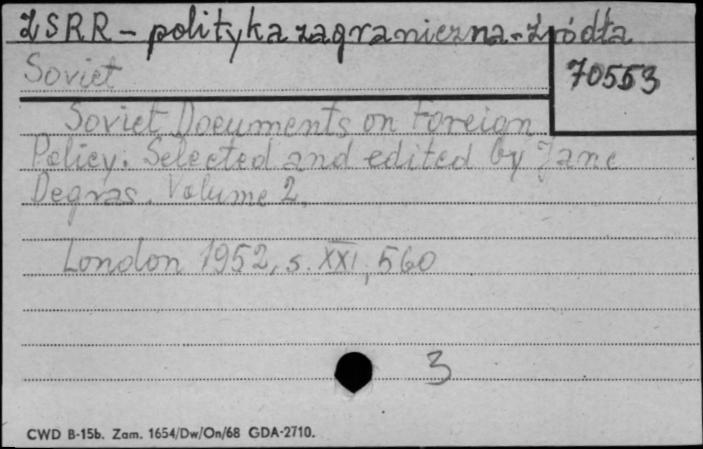 ZSRR - polityka zagraniczna - źródła
Soviet
70553
Soviet Documents on Foreign
Policy. Selected and edited by Jane
Degras. Volume 2.
London 1952, s. XXI, 560
3
CWD B-15b. Zam. 1654/Dw/On/68 GDA-2710.